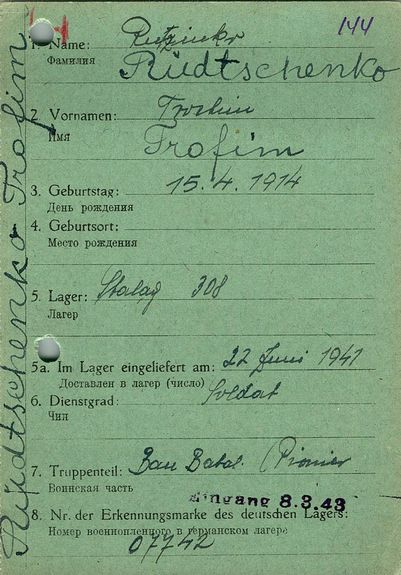 144
1. Name: Rutzinko
Фамилия Rüdtschenko
2. Vornamen: Trochim
Имя Trofim
3. Geburtstag: 15.4.1914
День рождения
4. Geburtsort:
Место рождения
5. Lager: Stalag 308
Лагер
5a. Im Lager eingeliefert am: 22 Juni 1941
Доставлен в лагер (число)
6. Dienstgrad: Soldat
Чин
7. Truppenteil: Bau Batal. (Pionier
Воинская часть
Eingang 8.3.43
8. Nr. der Erkennungsmarke des deutschen Lagers:
Номер военнопленного в германском лагере
07742
Rüdtschenko Trofim